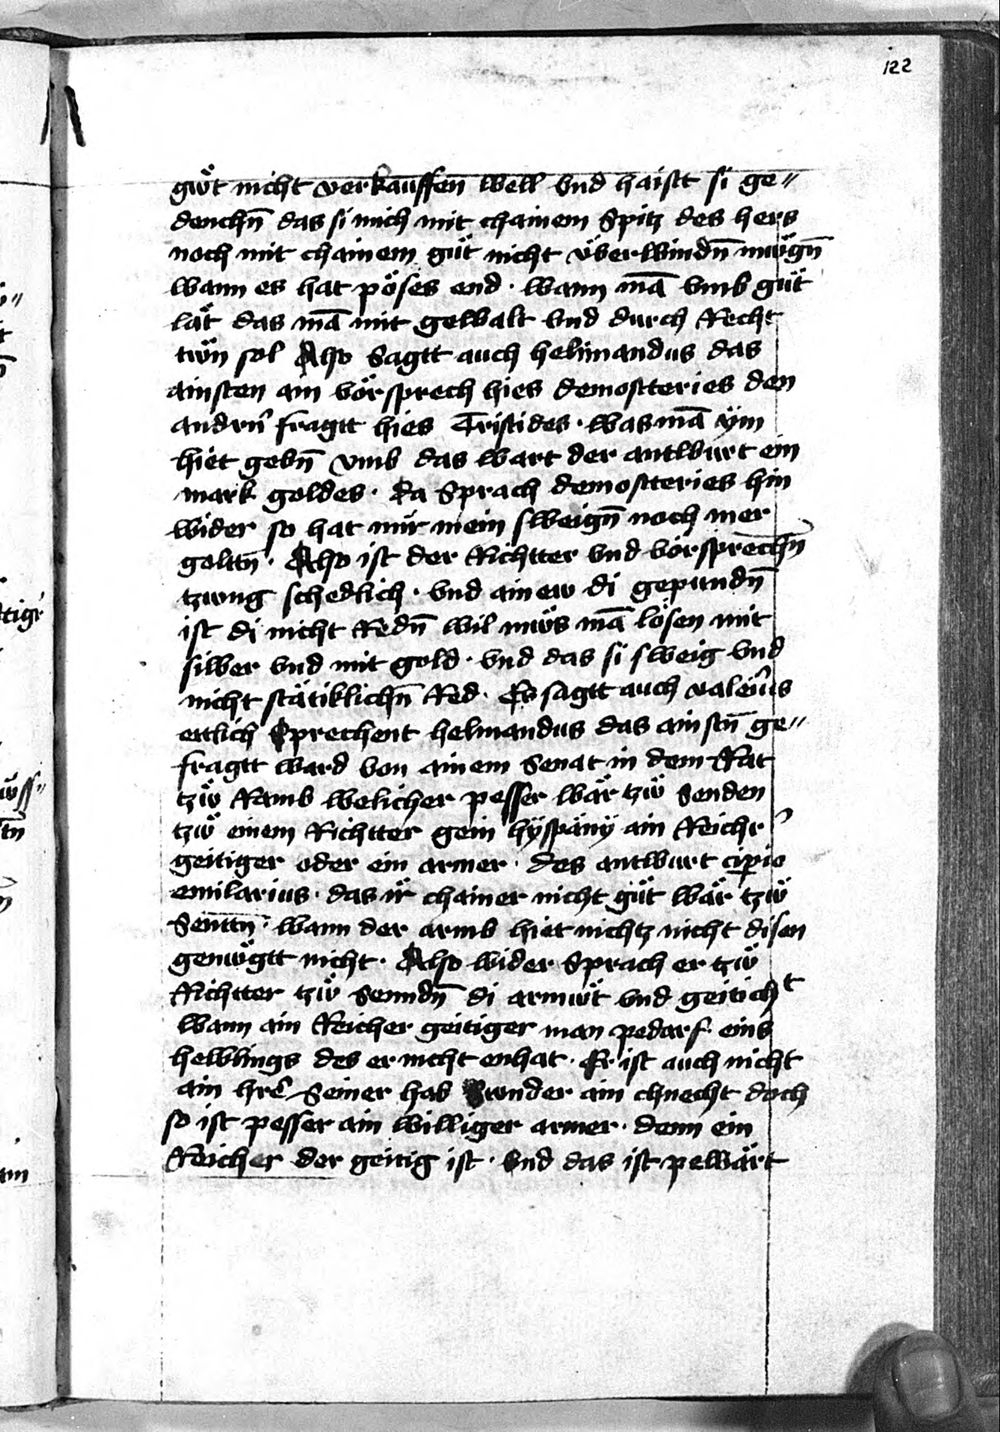 122
gwͦt nicht verkauffen̄ well vnd haistt si ge〃
denchn̄ das si mich mit chainem Spitz des hers
noch mit chainem guͤt nicht vͤberwindn̄ muͤgn̄
wann es hat poͤses end · wann mā vmb guͤt
laͤt das mā mit gewalt vnd durch Recht
twͤn sol Also Sagtt auch helimandus das
ainsten ain voͤrsprech hies demostteries den
andrn̄ fragtt hies Tristides · was mā ym
hiet gebn̄ vmb das wart der antwurt ein
mark goldes · da Sprach demostteries hin
wider so hat mir mein sweign̄ noch mer
goltn̄ · Also ist der Richtter vnd vorsprechn̄
tzwng schedlich · vnd ainew di gepundn̄
ist di nicht Redn̄ wil mwͤs mā loͤsen mit
silber vnd mit gold · vnd das si sweig vnd
nicht staͤtiklichn̄ Red · Es sagtt auch valerius
ettlich Sprechent helmandus das ainstn̄ ge〃
fragtt ward von ainem Senat in dem Rat
tzwͦ Ramb welicher pesser waͤr tzwͦ Senden
tzwͦ einem Richtter gein hyspany ain Reichr
geitiger oder ein armer · des antwurt cipio
emilarius · das ir chainer nicht guͤt waͤr tzwͦ
Senttn̄ · wann der armb hiet nichtz nicht disen
genwͤgtt nicht · Also wider Sprach er tzwͦ
Richtter tzwͦ Senndn̄ di armwͤt vnd geiticht
wann ain Reicher geitiger man pedarf eins
helblings des er nicht enhat · Er ist auch nicht
ain hre Seiner hab Swnder ain chnecht doch
so ist pesser ain williger armer · denn ein
Reicher der geitig ist · vnd das ist pewaͤrt